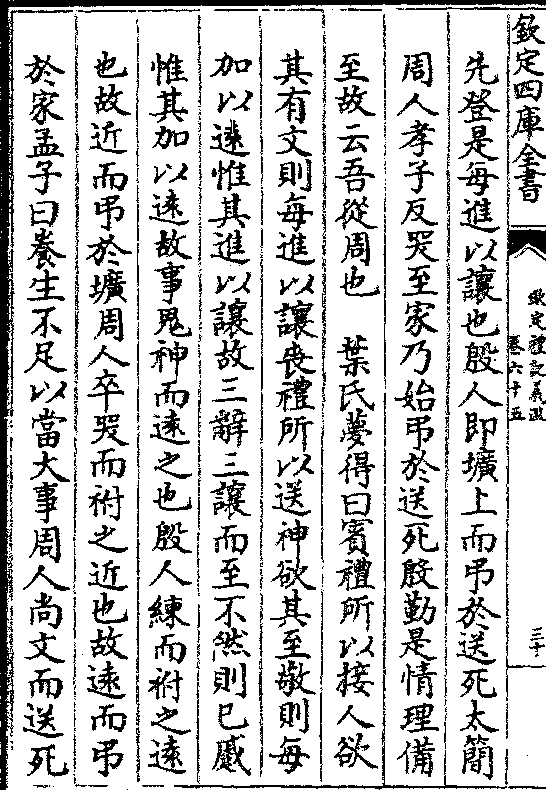 欽定四庫全書
欽定禮記義疏
卷六十五
三十
先登是每進以讓也殷人即壙上而弔於送死太簡
周人孝子反哭至家乃始弔於送死殷勤是情理備
至故云吾從周也　葉氏夢得曰賓禮所以接人欲
其有文則每進以讓喪禮所以送神欲其至敬則每
加以遠惟其進以讓故三辭三讓而至不然則已蹙
惟其加以遠故事鬼神而遠之也殷人練而祔之遠
也故近而弔於壙周人卒哭而祔之近也故遠而弔
於家孟子曰養生不足以當大事周人尚文而送死